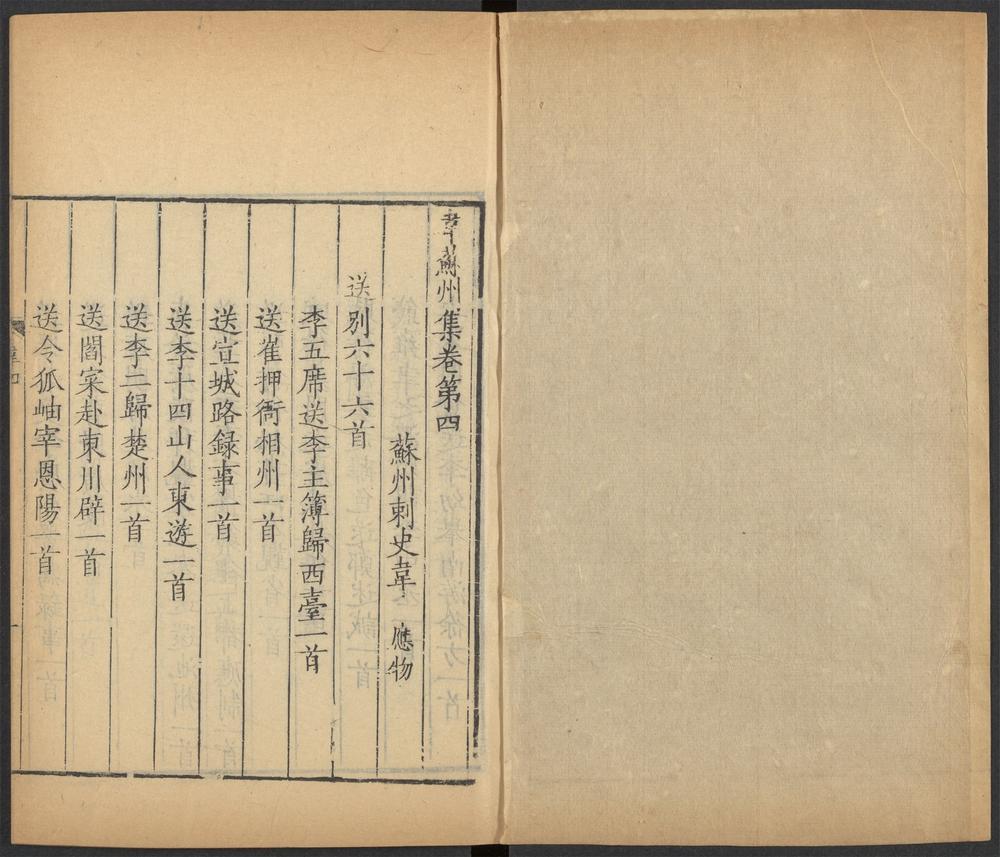 韋蘇州集卷第四
蘇州刺史韋 應物
送別六十六首
李五席送李主簿歸西臺一首
送崔押衙相州一首
送宣城路録事一首
送李十四山人東遊一首
送李二歸楚州一首
送閻寀赴東川辟一首
送令狐岫宰恩陽一首